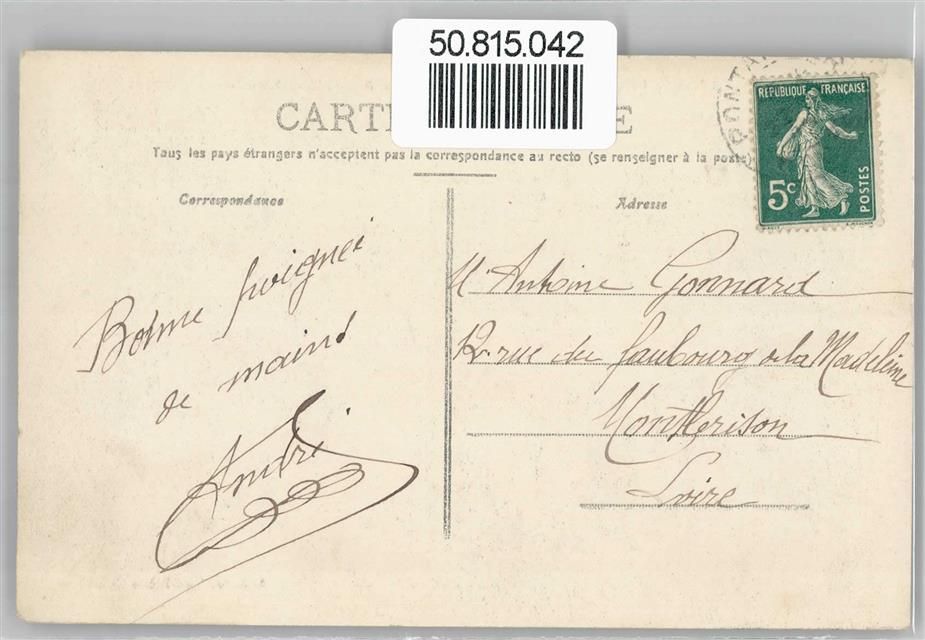 50.815.042
CARTE
Tous les pays étrangers n'acceptent pas la correspondance au recto (se renseigner à la poste)
Correspondance
Adresse
RÉPUBLIQUE FRANÇAISE
5c
POSTES
PONTA
Bonne poignée
de mains
André
M. Antoine Gonnard
12. rue du faubourg de la Madeleine
Montbrison
Loire